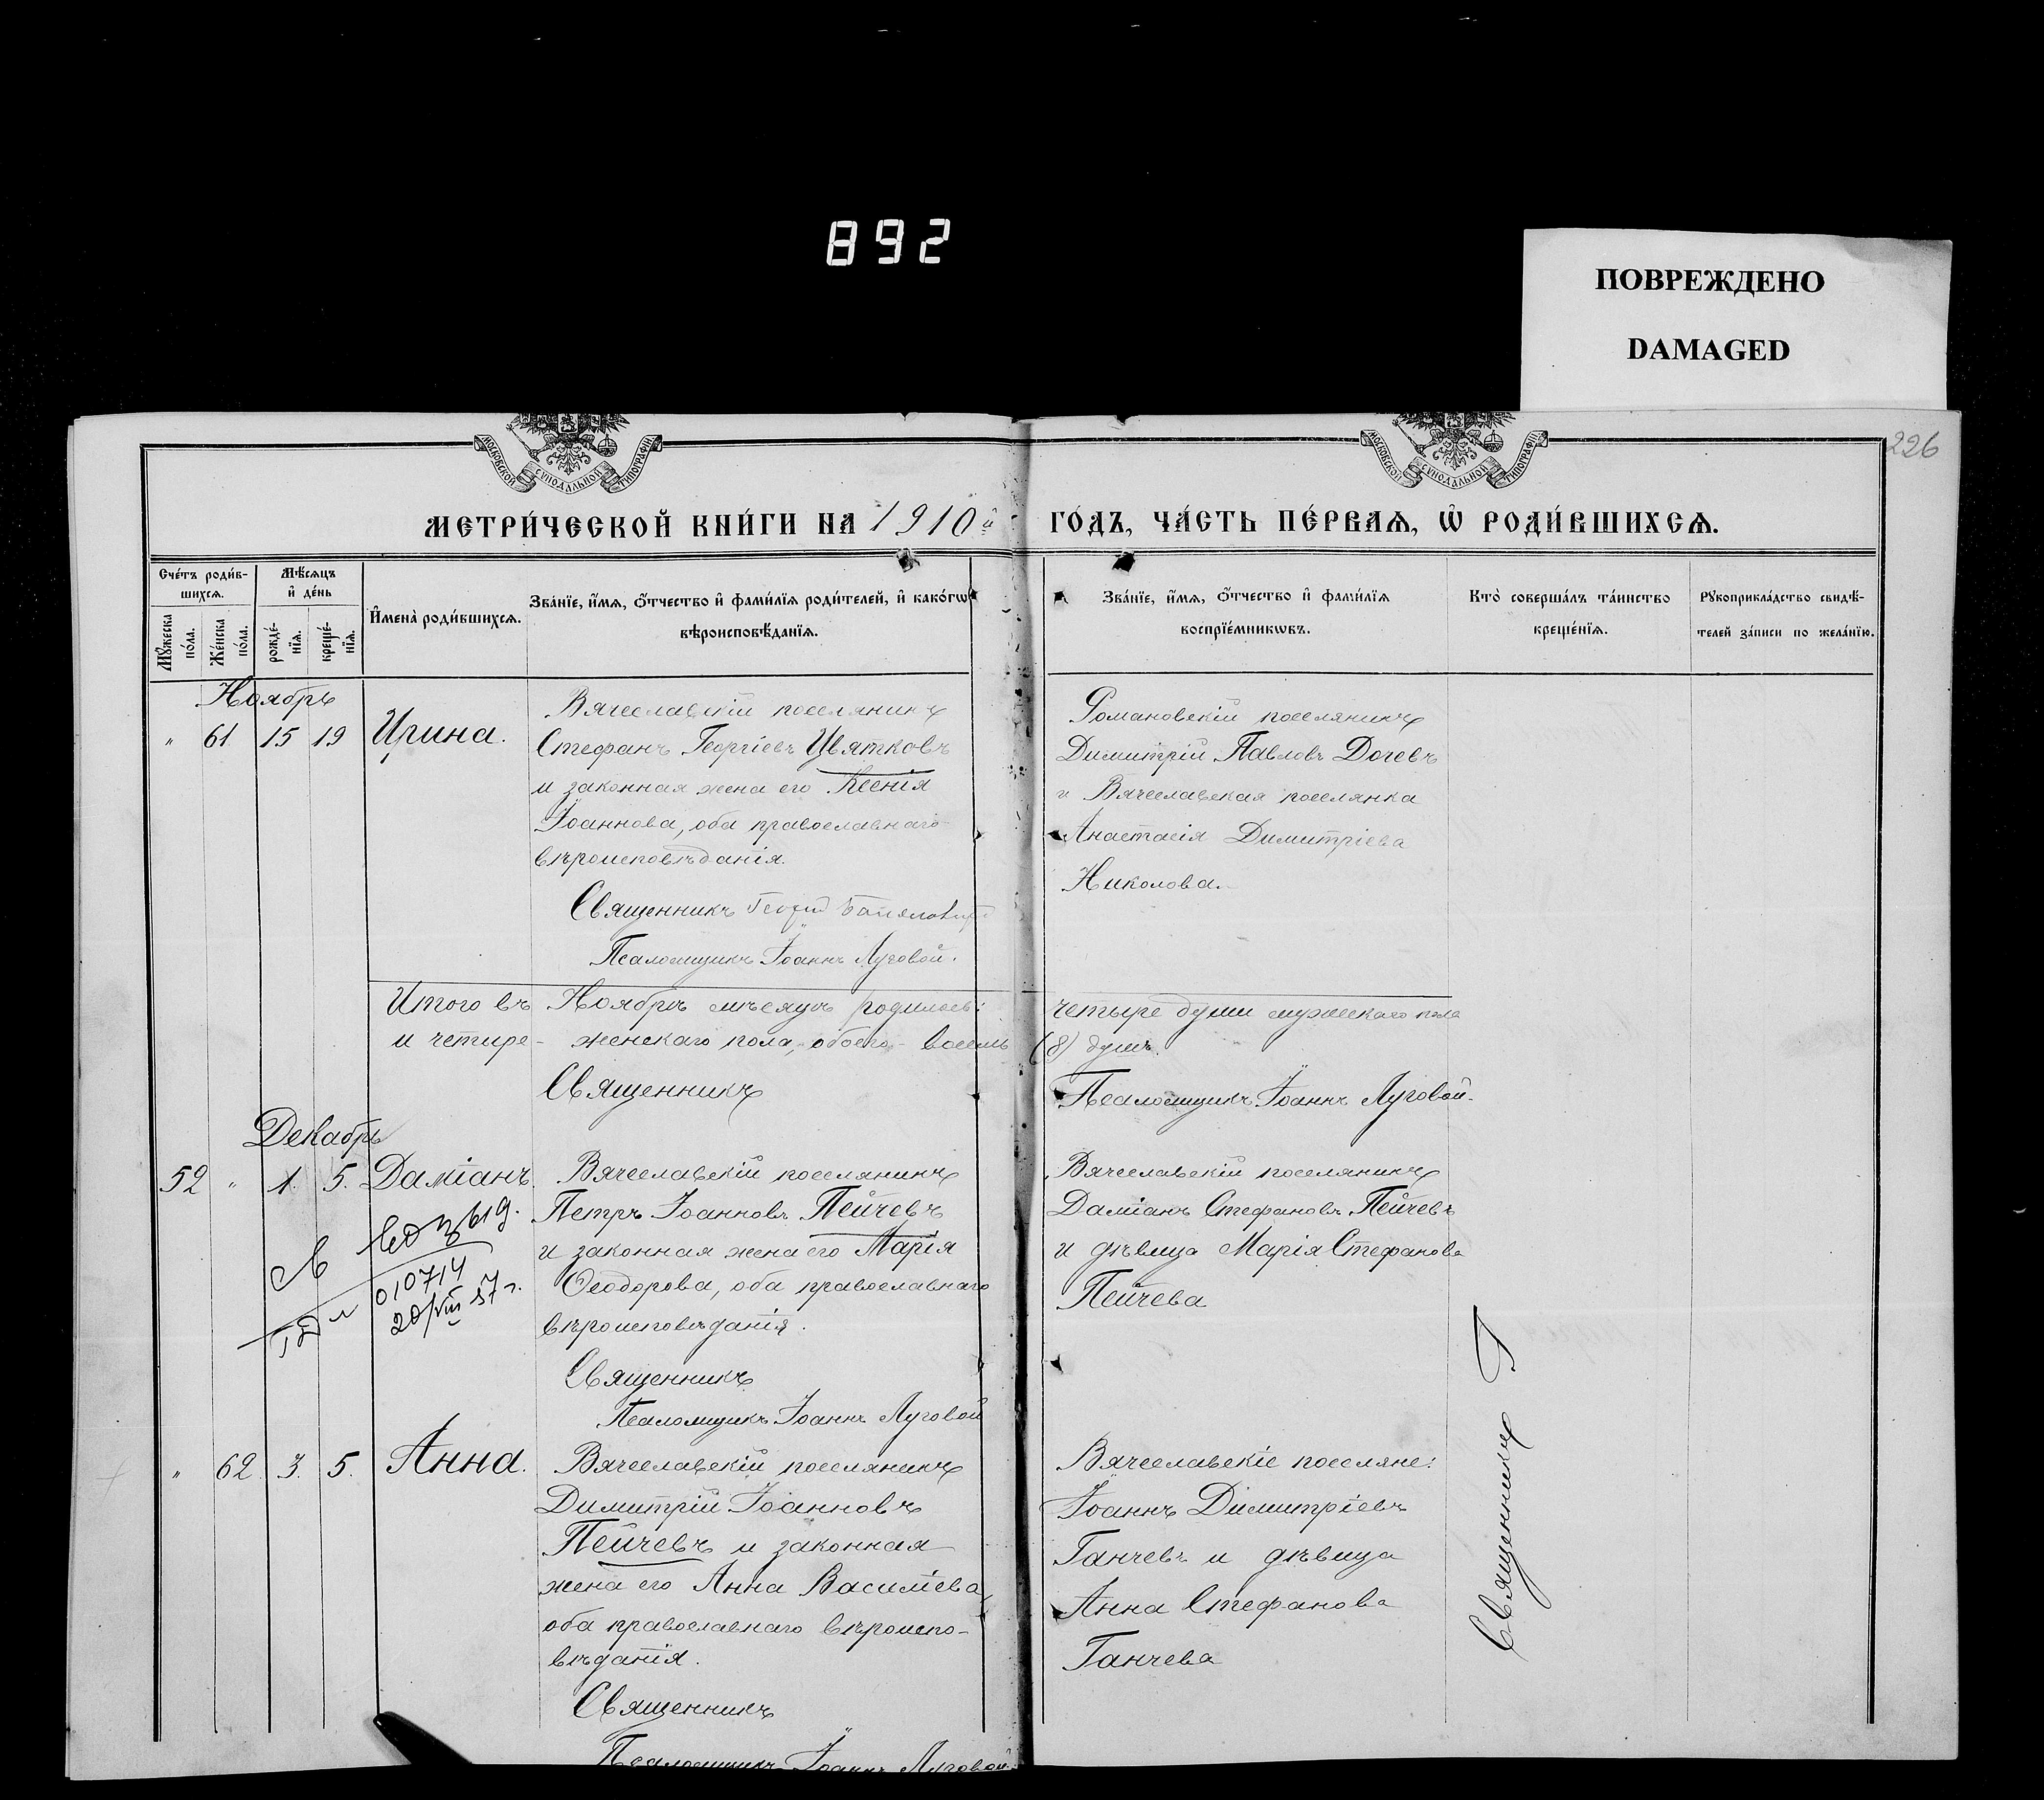 892
ПОВРЕЖДЕНО
DAMAGED
МОСКОВСКОЙ СѴНОДАЛЬНОЙ ТИПОГРАФІИ
МОСКОВСКОЙ СѴНОДАЛЬНОЙ ТИПОГРАФІИ
226
МЕТРИ́ЧЕСКОЙ КНИ́ГИ НА 1910й ГО́ДЪ, ЧА́СТЬ ПЕ́РВАѦ, Ѿ РОДИ́ВШИХСѦ.
Сче́тъ роди́в-
шихсѧ.
Мꙋ́жеска по́ла.
Же́нска по́ла.
Мѣ́сѧцъ
и҆ де́нь
рожде́-
нїѧ.
креще́-
нїѧ.
И҆мена̀ роди́вшихсѧ.
Зва́нїе, и҆́мѧ, ѻ҆́тчество и҆ фами́лїѧ роди́телей, и҆ како́гѡ
вѣроисповѣ́данїѧ.
Зва́нїе, и҆́мѧ, ѻ҆́тчество и҆ фами́лїѧ
воспрїе́мникѡвъ.
Кто̀ соверша́лъ та́инство
креще́нїѧ.
Рꙋкоприкла́дство свидѣ́-
телей за́писи по жела́нїю.
Ноябрь
" 61 15 19 Ирина.
Вячеславскій поселянинъ
Стефанъ Георгіевъ Цвятковъ
и законная жена его Ксенія
Іоаннова, оба православнаго
вѣроисповѣданія.
Священникъ
Псаломщикъ Іоаннъ Луговой.
Романовскій поселянинъ
Димитрій Павловъ Дочевъ
и Вячеславская поселянка
Анастасія Димитріева
Николова.
Итого въ Ноябрѣ мѣсяцѣ родилось: четыре души мужескаго пола
и четыре - женскаго пола, обоего - восемь (8) душъ.
Священникъ
Псаломщикъ Іоаннъ Луговой.
Декабрь
52 " 1. 5. Даміанъ.
010714
Вячеславскій поселянинъ
Петръ Іоанновъ Пейчевъ
и законная жена его Марія
Ѳеодорова, оба православнаго
вѣроисповѣданія.
Священникъ
Псаломщикъ Іоаннъ Луговой
Вячеславскій поселянинъ
Даміанъ Стефановъ Пейчевъ
и дѣвица Марія Стефанова
Пейчева
" 62. 3. 5. Анна.
Вячеславскій поселянинъ
Димитрій Іоанновъ
Пейчевъ и законная
жена его Анна Василіева,
оба православнаго вѣроиспо-
вѣданія.
Священникъ
Псаломщикъ Іоаннъ Луговой
Вячеславскіе поселяне:
Іоаннъ Димитріевъ
Ганчевъ и дѣвица
Анна Стефанова
Ганчева
Священникъ Г